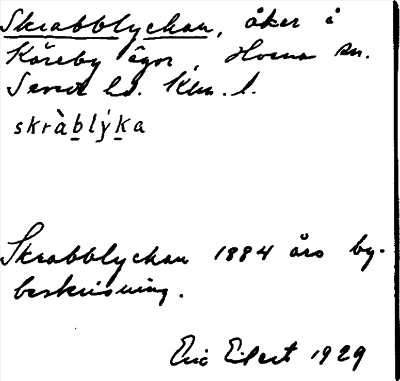 Skrabblyckan, åker å
Kåreby ägor, Hossna sn.
hd. l.
skràblýka
Skrabblyckan 1884 års by-
beskrivning.
Eric Elert 1929